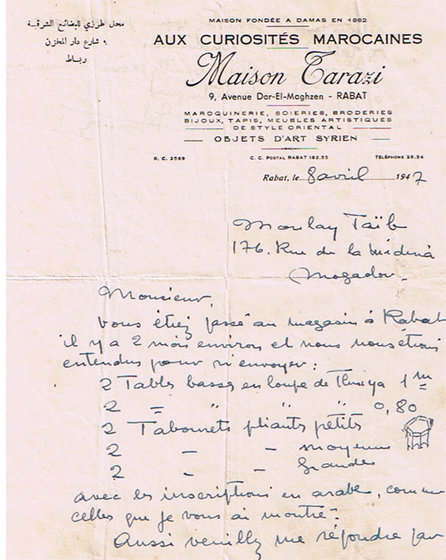 محل طرزي للبضائع الشرقية
٩ شارع دار المخزن
رباط
MAISON FONDÉE A DAMAS EN 1862
AUX CURIOSITÉS MAROCAINES
Maison Tarazi
9, Avenue Dar-El-Maghzen - RABAT
MAROQUINERIE, SOIERIES, BRODERIES
BIJOUX, TAPIS, MEUBLES ARTISTIQUES
DE STYLE ORIENTAL
OBJETS D'ART SYRIEN
R. C. 2569 C. C. POSTAL RABAT 182.55 TÉLÉPHONE 29.54
Rabat, le 8 avril 1947
Moulay Taïb
176. Rue de la Médina
Mogador
Monsieur,
Vous étiez passé au magasin à Rabat
il y a 2 mois environ et nous nous étions
entendus pour m'envoyer :
2 Tables basses en loupe de Thuya 1 m
2 = " " 0,80
2 Tabourets pliants petits
2 - - moyenne
2 - - Grandes
avec les inscriptions en arabe, comme
celles que je vous ai montré.
Aussi veuillez me répondre par